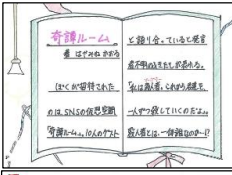 奇譚ルーム
著 はやみね かおる
ぼくが招待された
のは、SNSの仮想空間
「奇譚ルーム」。10人のゲスト
と語り合っていると発言
者不明のふきだしが表れる。
「私は殺人者。これから君たちを
一人ずつ殺していくのだよ。」
殺人者とは、一体誰なのか…!?